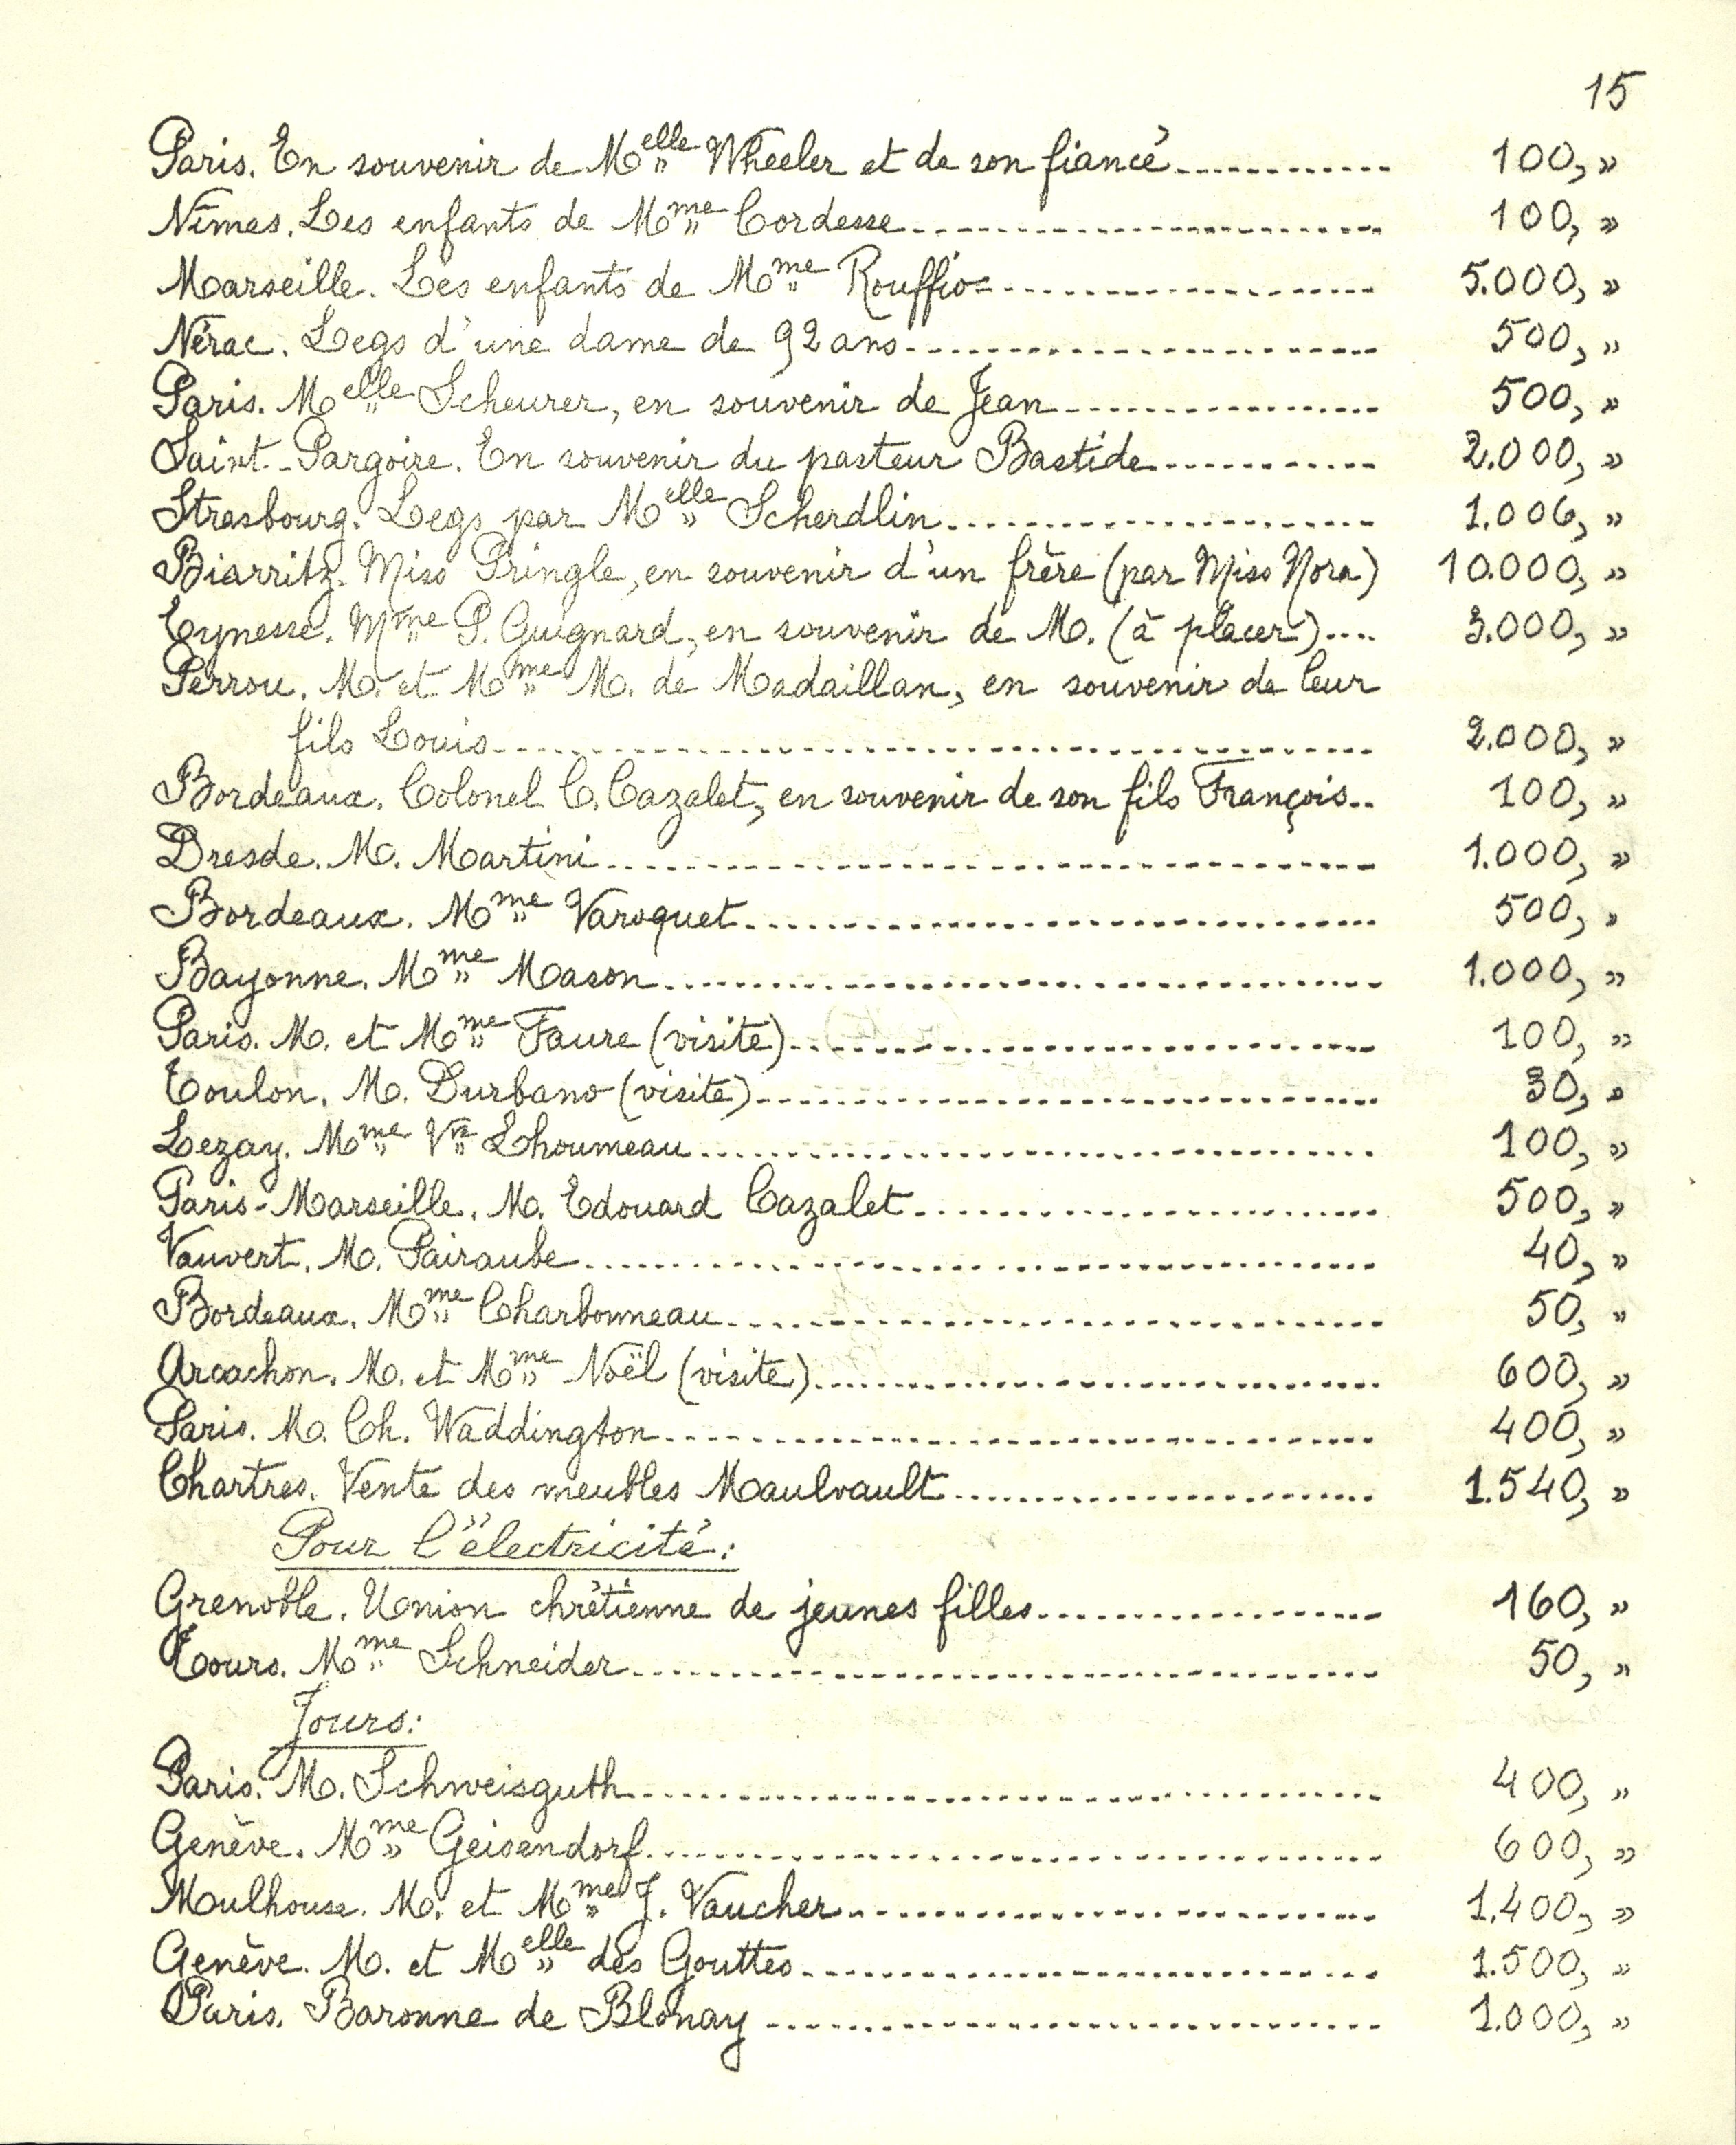 15
Paris. En souvenir de Melle Wheeler et de son fiancé............ 100, »
Nîmes. Les enfants de Mme Cordesse............ 100, »
Marseille. Les enfants de Mme Rouffio............ 5.000, »
Nérac. Legs d'une dame de 92 ans............ 500, »
Paris. Melle Scheurer, en souvenir de Jean............ 500, »
Saint-Pargoire. En souvenir du pasteur Bastide............ 2.000, »
Strasbourg. Legs par Melle Scherdlin............ 1.006, »
Biarritz. Miss Pringle, en souvenir d'un frère (par Miss Nora) 10.000, »
Eynesse. Mme P. Guignard, en souvenir de M. (à placer).... 3.000, »
Perrou. M. et Mme M. de Madaillan, en souvenir de leur
fils Louis............ 2.000, »
Bordeaux. Colonel C. Cazalet, en souvenir de son fils François.. 100, »
Dresde. M. Martini............ 1.000, »
Bordeaux. Mme Varoquet............ 500, »
Bayonne. Mme Mason............ 1.000, »
Paris. M. et Mme Faure (visite)............ 100, »
Toulon. M. Durbano (visite)............ 30, »
Lezay. Mme Vve Lhoumeau............ 100, »
Paris-Marseille. M. Edouard Cazalet............ 500, »
Vauvert. M. Pairaube............ 40, »
Bordeaux. Mme Charbonneau............ 50, »
Arcachon. M. et Mme Noël (visite)............ 600, »
Paris. M. Ch. Waddington............ 400, »
Chartres. Vente des meubles Maulvault............ 1.540, »
Pour l'électricité:
Grenoble. Union chrétienne de jeunes filles............ 160, »
Tours. Mme Schneider............ 50, »
Jours:
Paris. M. Schweisguth............ 400, »
Genève. Mme Geisendorf............ 600, »
Mulhouse. M. et Mme J. Vaucher............ 1.400, »
Genève. M. et Melle des Gouttes............ 1.500, »
Paris. Baronne de Blonay............ 1.000, »